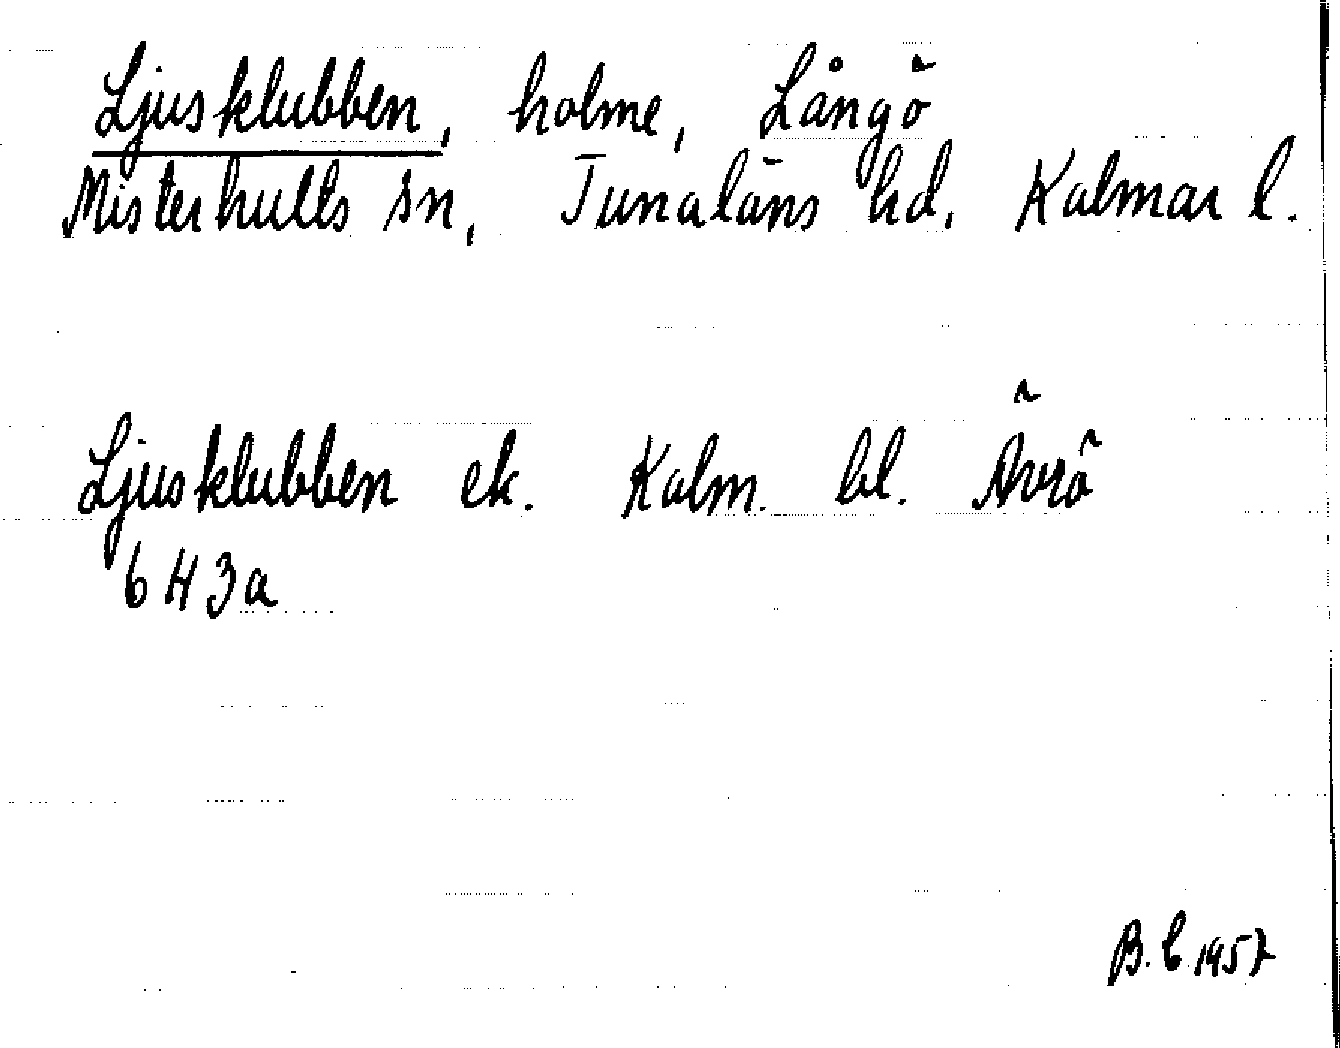 Ljusklubben, holme, Långö
Misterhults sn, Tunaläns hd. Kalmar l.
Ljusklubben ek. Kalm. bl. Ävrö
6 H 3a
B. C 1957